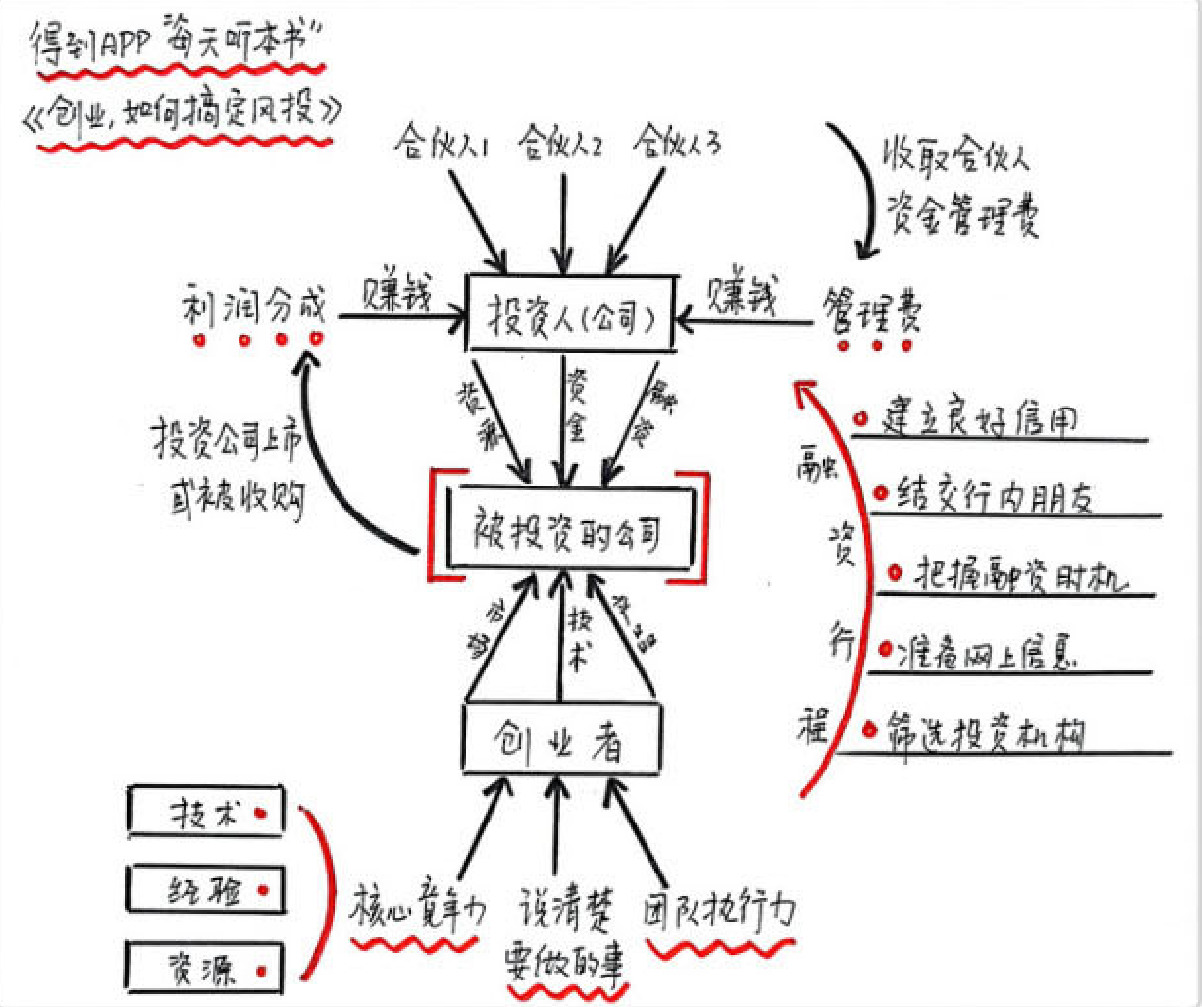 得到APP“每天听本书”
《创业,如何搞定风投》
合伙人1 合伙人2 合伙人3
收取合伙人
资金管理费
利润分成
赚钱
投资人(公司)
赚钱
管理费
资金
融资
投资公司上市
或被收购
被投资的公司
技术
创业者
融资行程
建立良好信用
结交行内朋友
把握融资时机
准备网上信息
筛选投资机构
技术
经验
资源
核心竞争力
说清楚
要做的事
团队执行力